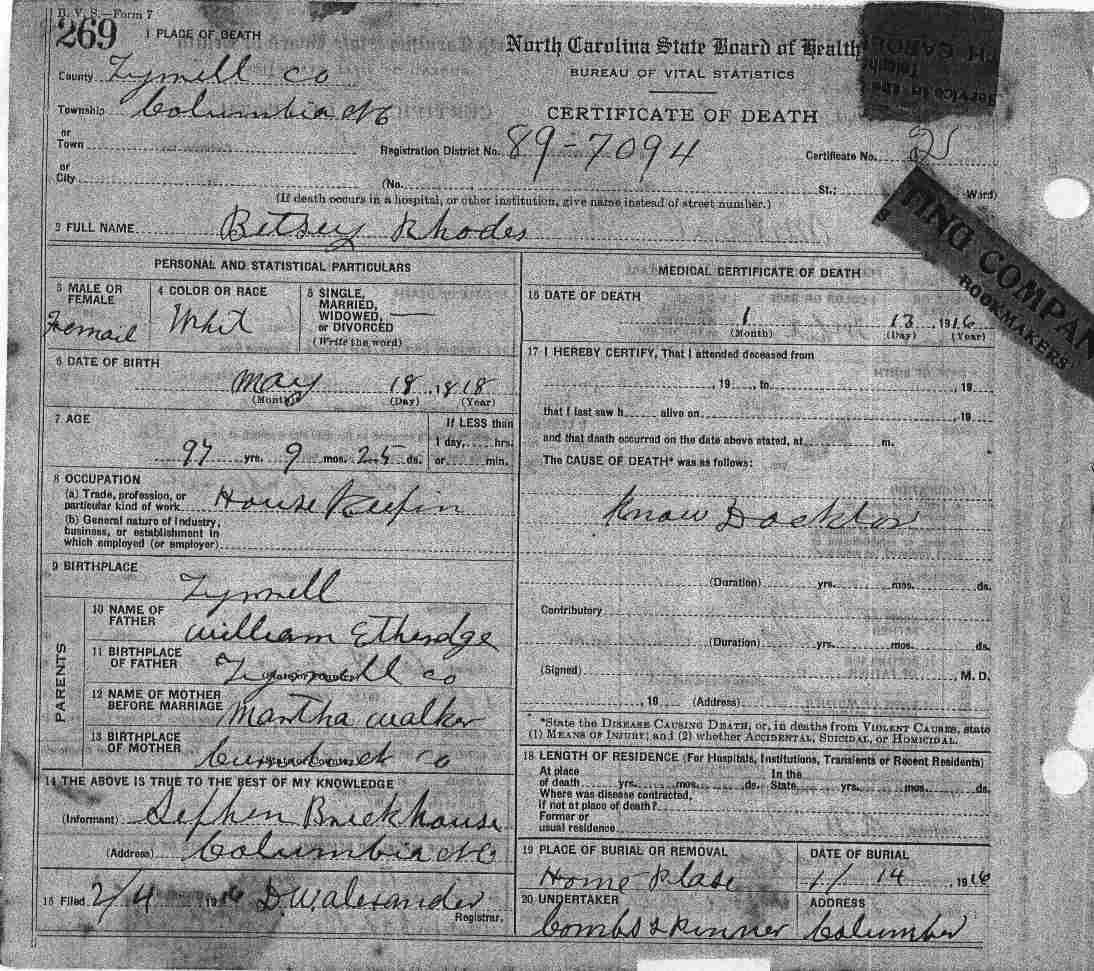 B. V. S.—Form 7
269
1 PLACE OF DEATH
County Tyrrell Co
Township Columbia NC
or
Town
or
City
North Carolina State Board of Health
BUREAU OF VITAL STATISTICS
CERTIFICATE OF DEATH
Registration District No. 89-7094
Certificate No. 2
(No. St.; Ward)
(If death occurs in a hospital, or other institution, give name instead of street number.)
2 FULL NAME Betsey Rhodes
PERSONAL AND STATISTICAL PARTICULARS
3 MALE OR FEMALE
Femail
4 COLOR OR RACE
Whit
5 SINGLE, MARRIED, WIDOWED, or DIVORCED
(Write the word)
6 DATE OF BIRTH
May 18, 1818
(Month) (Day) (Year)
7 AGE
97 yrs. 9 mos. 25 ds.
If LESS than
1 day, hrs.
or min.
8 OCCUPATION
(a) Trade, profession, or
particular kind of work House Keepin
(b) General nature of Industry,
business, or establishment in
which employed (or employer)
9 BIRTHPLACE
Tyrrell
PARENTS
10 NAME OF FATHER
William Etheridge
11 BIRTHPLACE OF FATHER
Tyrrell Co
12 NAME OF MOTHER BEFORE MARRIAGE
Martha Walker
13 BIRTHPLACE OF MOTHER
Currituck Co
14 THE ABOVE IS TRUE TO THE BEST OF MY KNOWLEDGE
(Informant) Stephen Brickhouse
(Address) Columbia NC
15 Filed 2/4 1916 D.W. Alexander
Registrar.
MEDICAL CERTIFICATE OF DEATH
16 DATE OF DEATH
1 13, 1916
(Month) (Day) (Year)
17 I HEREBY CERTIFY, That I attended deceased from
, 19 , to , 19
that I last saw h alive on , 19
and that death occurred on the date above stated, at m.
The CAUSE OF DEATH* was as follows:
Know Docktor
(Duration) yrs. mos. ds.
Contributory
(Duration) yrs. mos. ds.
(Signed) , M. D.
, 19 (Address)
*State the DISEASE CAUSING DEATH, or, in deaths from VIOLENT CAUSES, state
(1) MEANS OF INJURY; and (2) whether ACCIDENTAL, SUICIDAL, or HOMICIDAL.
18 LENGTH OF RESIDENCE (For Hospitals, Institutions, Transients or Recent Residents)
At place of death yrs. mos. ds. In the State yrs. mos. ds.
Where was disease contracted,
If not at place of death?
Former or
usual residence
19 PLACE OF BURIAL OR REMOVAL
Home Plase
DATE OF BURIAL
1/ 14, 1916
20 UNDERTAKER
Combs & Pinner
ADDRESS
Columbia
TING COMPAN
BOOKMAKERS